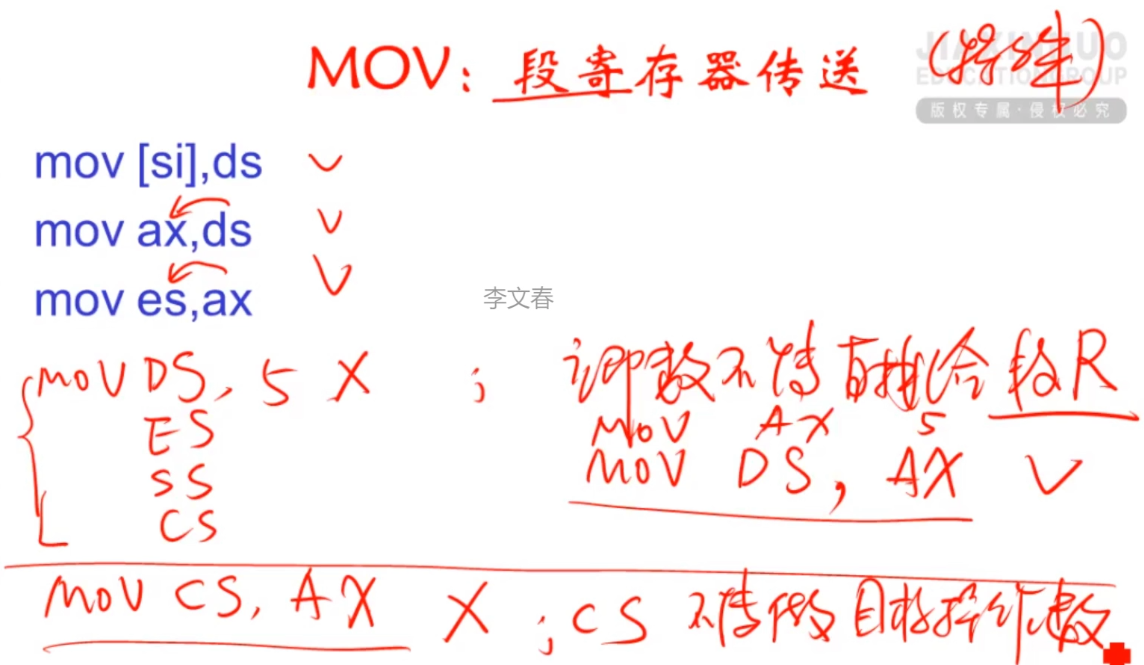 MOV：段寄存器传送 (特殊)
JIAXINHUO
EDUCATION GROUP
版权专属·侵权必究
mov [si],ds
mov ax,ds
mov es,ax
李文春
MOV DS, 5 X ; 立即数不传直接给段R
ES MOV AX 5
MOV DS, AX
SS
CS
MOV CS, AX X ; CS 不传做目标操作数